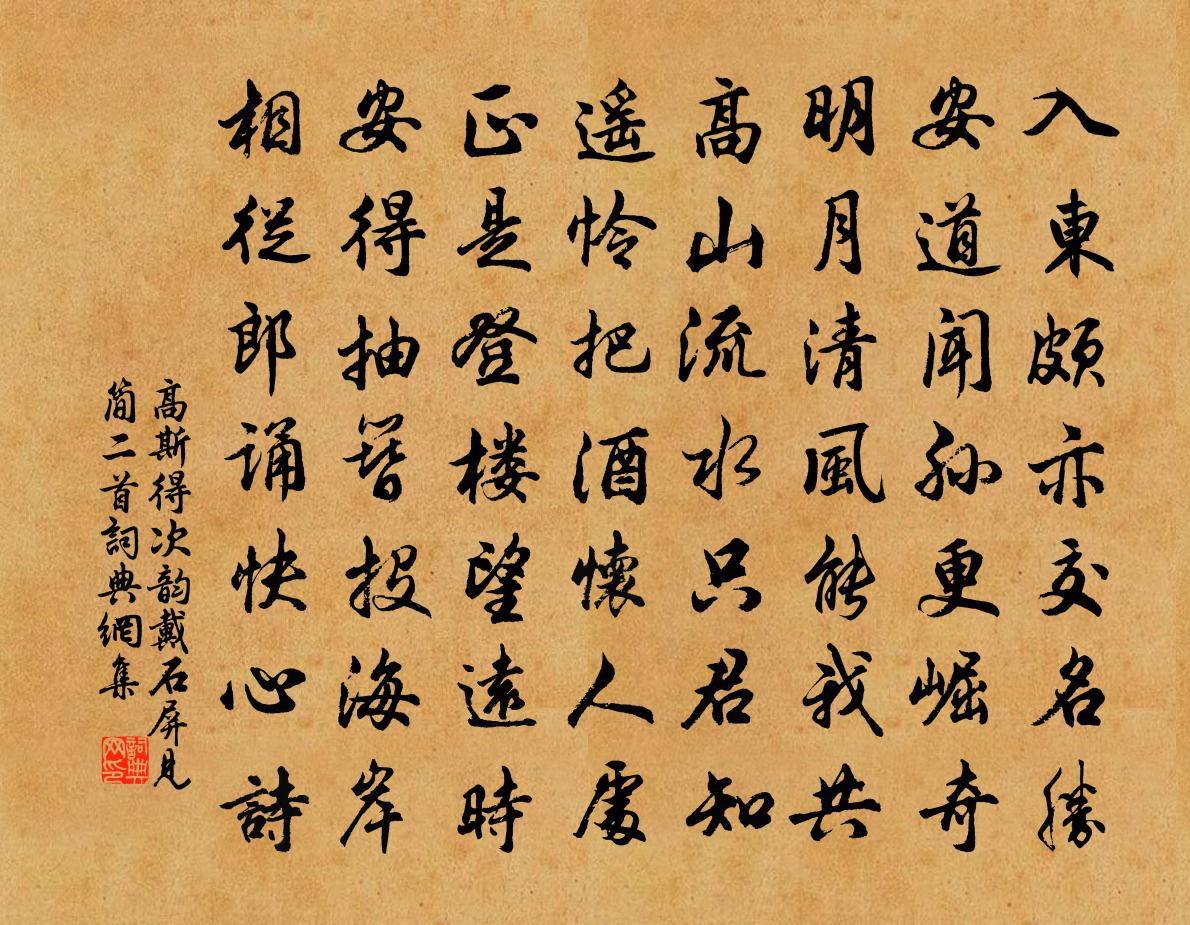 入東頗亦交名勝
安道聞孫更崛奇
明月清風能我共
高山流水只君知
遥怜把酒懷人處
正是登楼望遠時
安得抽簪投海岸
相從郎誦快心詩
高斯得次韵戴石屏見
简二首詞典網集
詞典網印